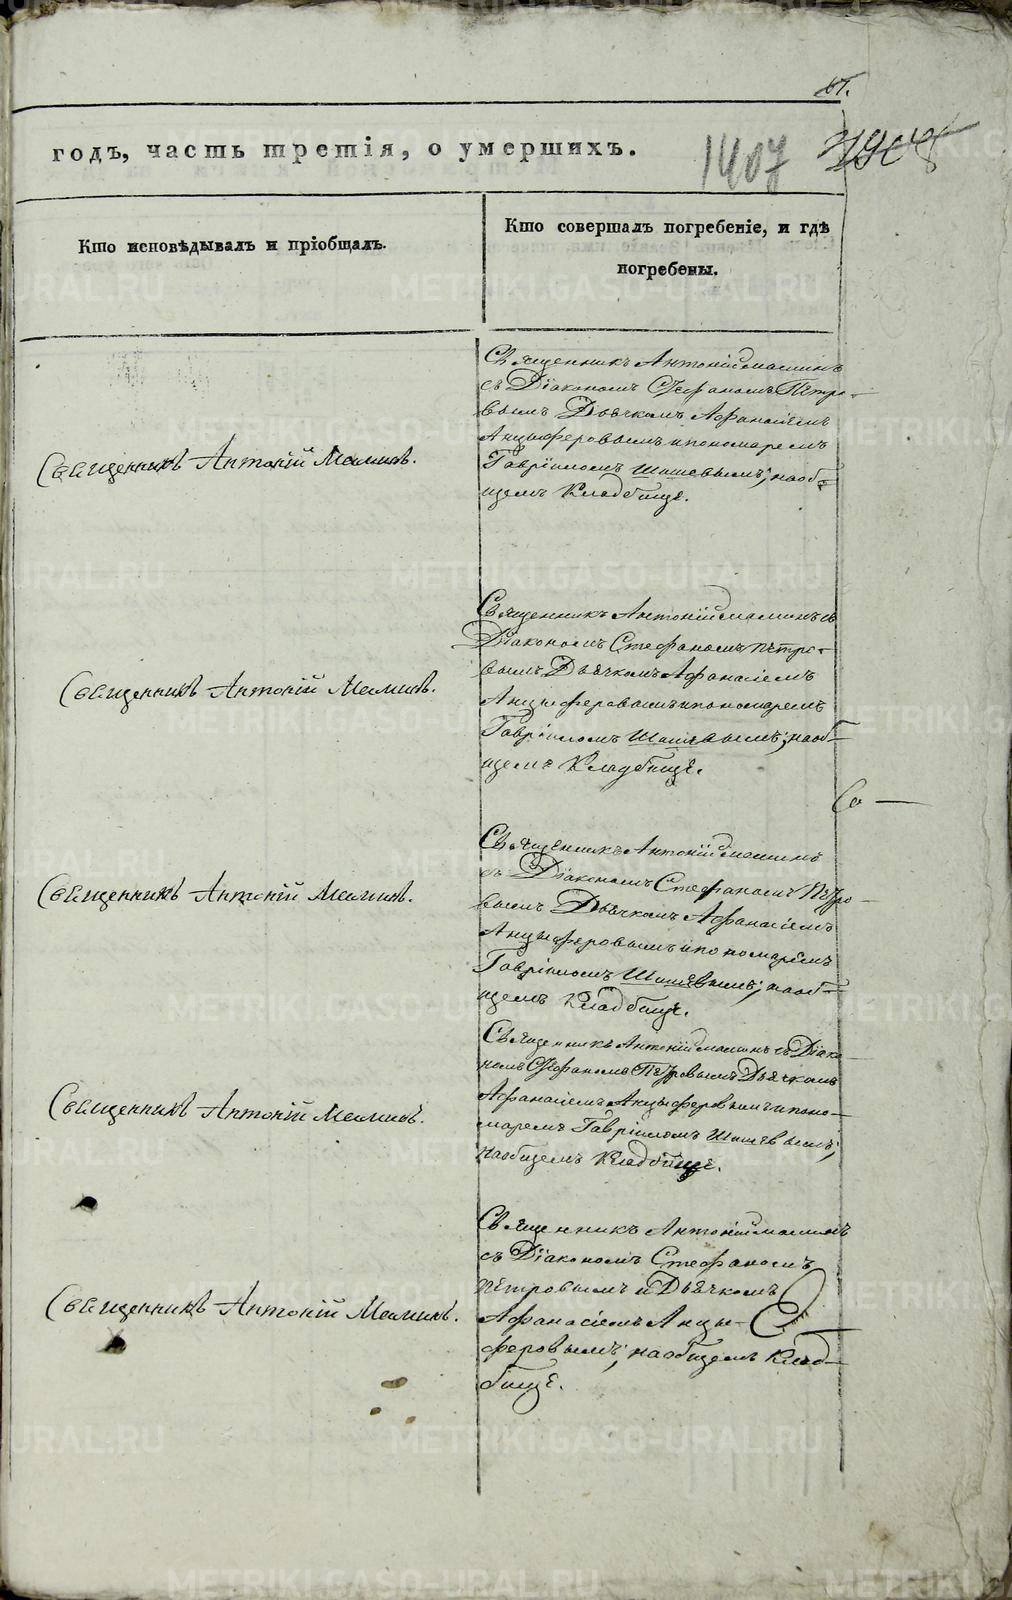 годъ, часть третія, о умершихъ.
1407
Кто исповѣдывалъ и пріобщалъ.
Кто совершалъ погребеніе, и гдѣ
погребены.
Священникъ Антоній Маминъ.
Священникъ Антоній Маминъ
съ Діакономъ Стефаномъ Петро-
вымъ Дьячкомъ Афанасіемъ
Анцыферовымъ и пономаремъ
Гавріиломъ Шишевымъ; на об-
щемъ Кладбище.
Священникъ Антоній Маминъ.
Священникъ Антоній Маминъ съ
Діакономъ Стефаномъ Петро-
вымъ Дьячкомъ Афанасіемъ
Анцыферовымъ и пономаремъ
Гавріиломъ Шишевымъ; на об-
щемъ Кладбище.
Священникъ Антоній Маминъ.
Священникъ Антоній Маминъ
съ Діакономъ Стефаномъ Петро-
вымъ Дьячкомъ Афанасіемъ
Анцыферовымъ и пономаремъ
Гавріиломъ Шишевымъ; на об-
щемъ Кладбище.
Священникъ Антоній Маминъ.
Священникъ Антоній Маминъ съ Діако-
номъ Стефаномъ Петровымъ Дьячкомъ
Афанасіемъ Анцыферовымъ и поно-
маремъ Гавріиломъ Шишевымъ;
на общемъ Кладбище.
Священникъ Антоній Маминъ.
Священникъ Антоній Маминъ
съ Діакономъ Стефаномъ
Петровымъ и Дьячкомъ
Афанасіемъ Анцы-
феровымъ; на общемъ Клад-
бище.
METRIKI.GASO-URAL.RU